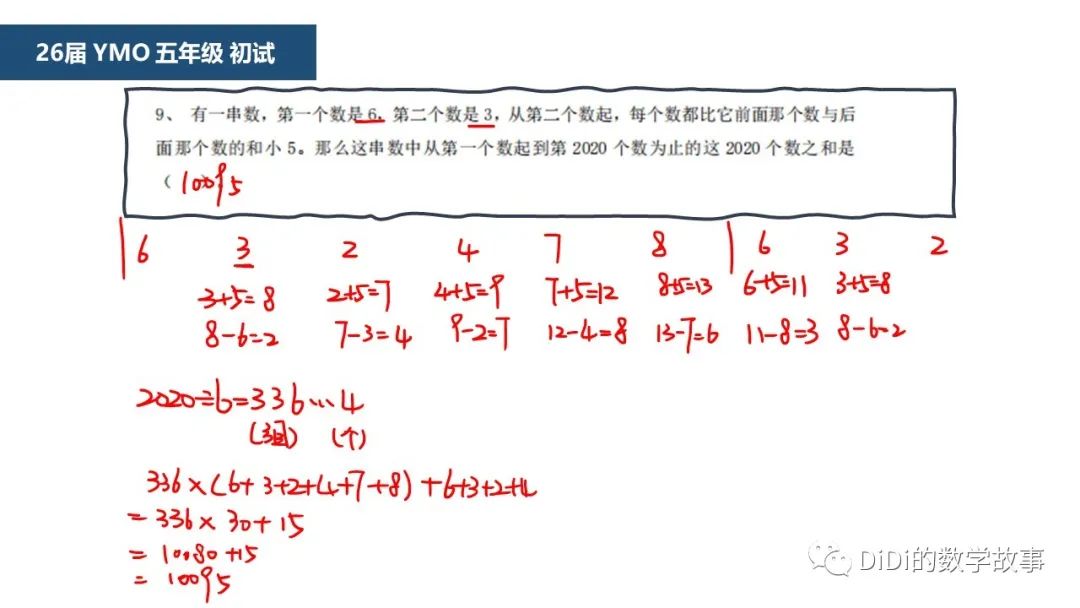 26届 YMO 五年级 初试
9、 有一串数，第一个数是 6，第二个数是 3，从第二个数起，每个数都比它前面那个数与后
面那个数的和小 5。那么这串数中从第一个数起到第 2020 个数为止的这 2020 个数之和是
（ 10095
6 3 2 4 7 8 6 3 2
3+5=8 2+5=7 4+5=9 7+5=12 8+5=13 6+5=11 3+5=8
8-6=2 7-3=4 9-2=7 12-4=8 13-7=6 11-8=3 8-6=2
2020÷6=336…4
(组) (个)
336×(6+3+2+4+7+8)+6+3+2+4
=336×30+15
=10080+15
=10095
DiDi的数学故事